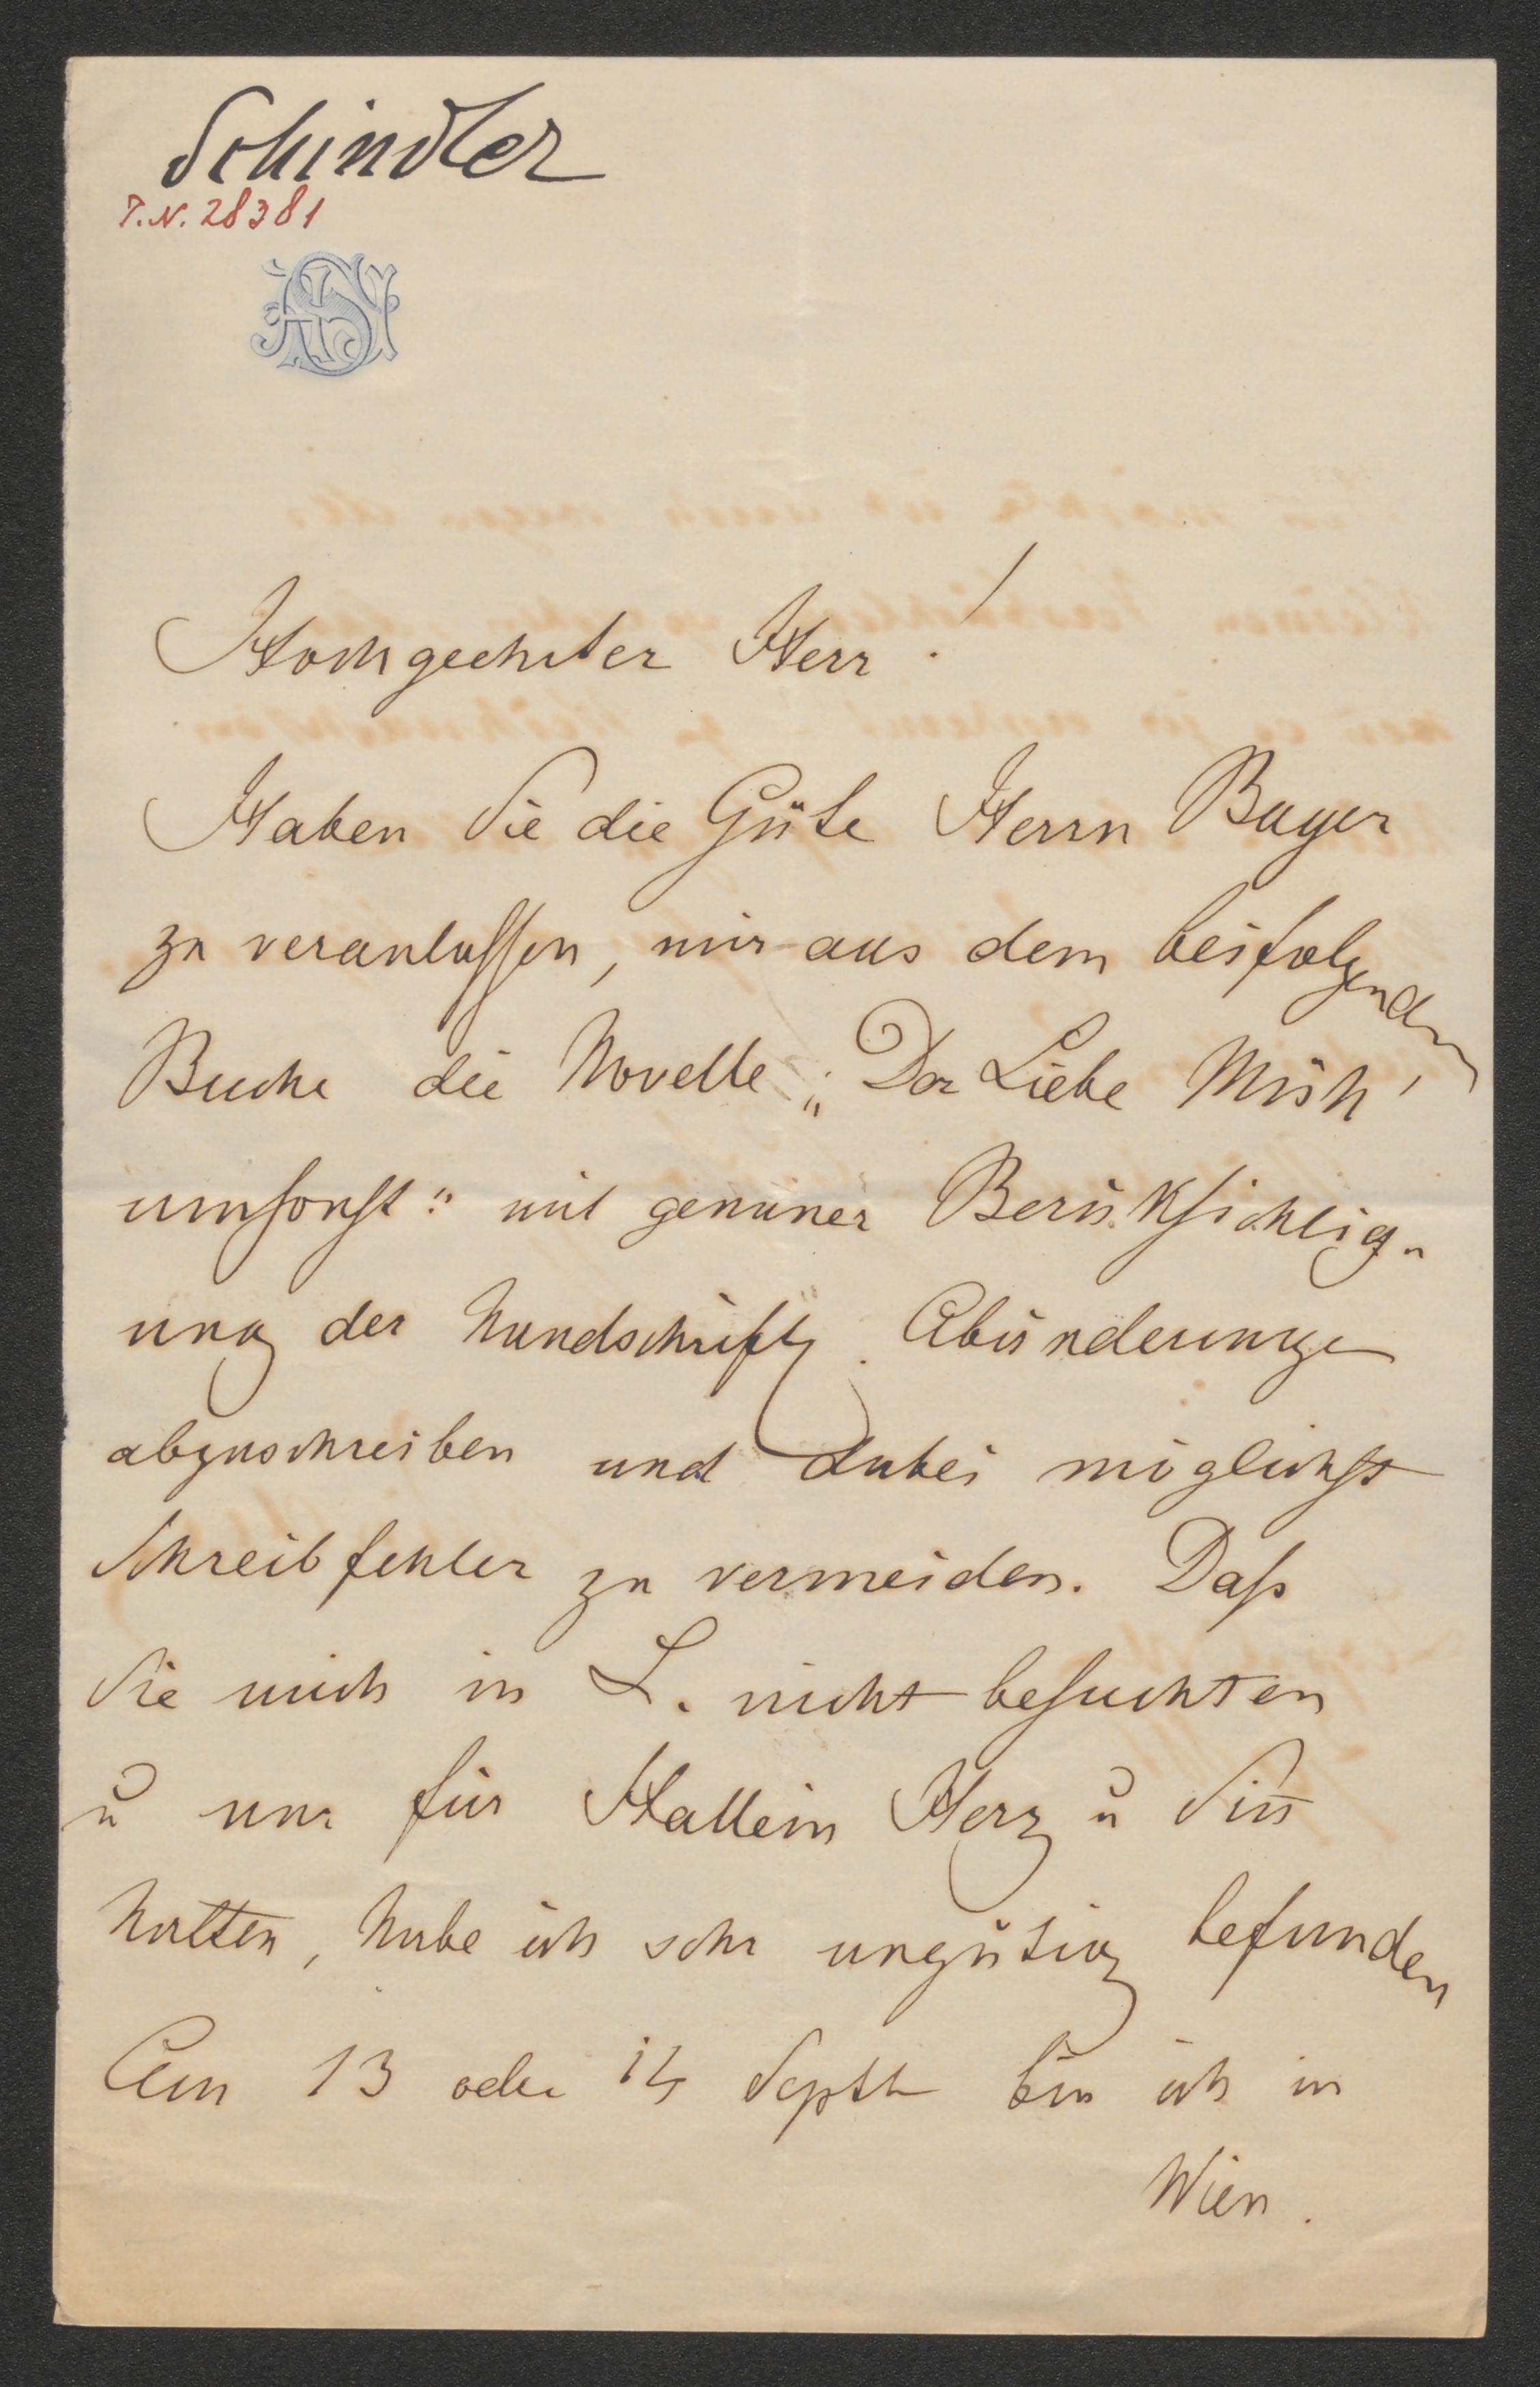 Schindler
I.N. 28381
AS
Hochgeehrter Herr!
Haben Sie die Güte Herrn Bayer
zu veranlassen, mir aus dem beifolgenden
Buche die Novelle „Der Liebe Müh'
umsonst" mit genauer Berüksichtig-
ung der handschriftl. Abänderungen
abzuschreiben und dabei möglichst
Schreibfehler zu vermeiden. Daß
Sie mich in L. nicht besuchten
u nur für Hallein Herz u Sin̄
hatten, habe ich sehr ungütig befunden
Am 13 oder 14 Septb bin ich in
Wien.